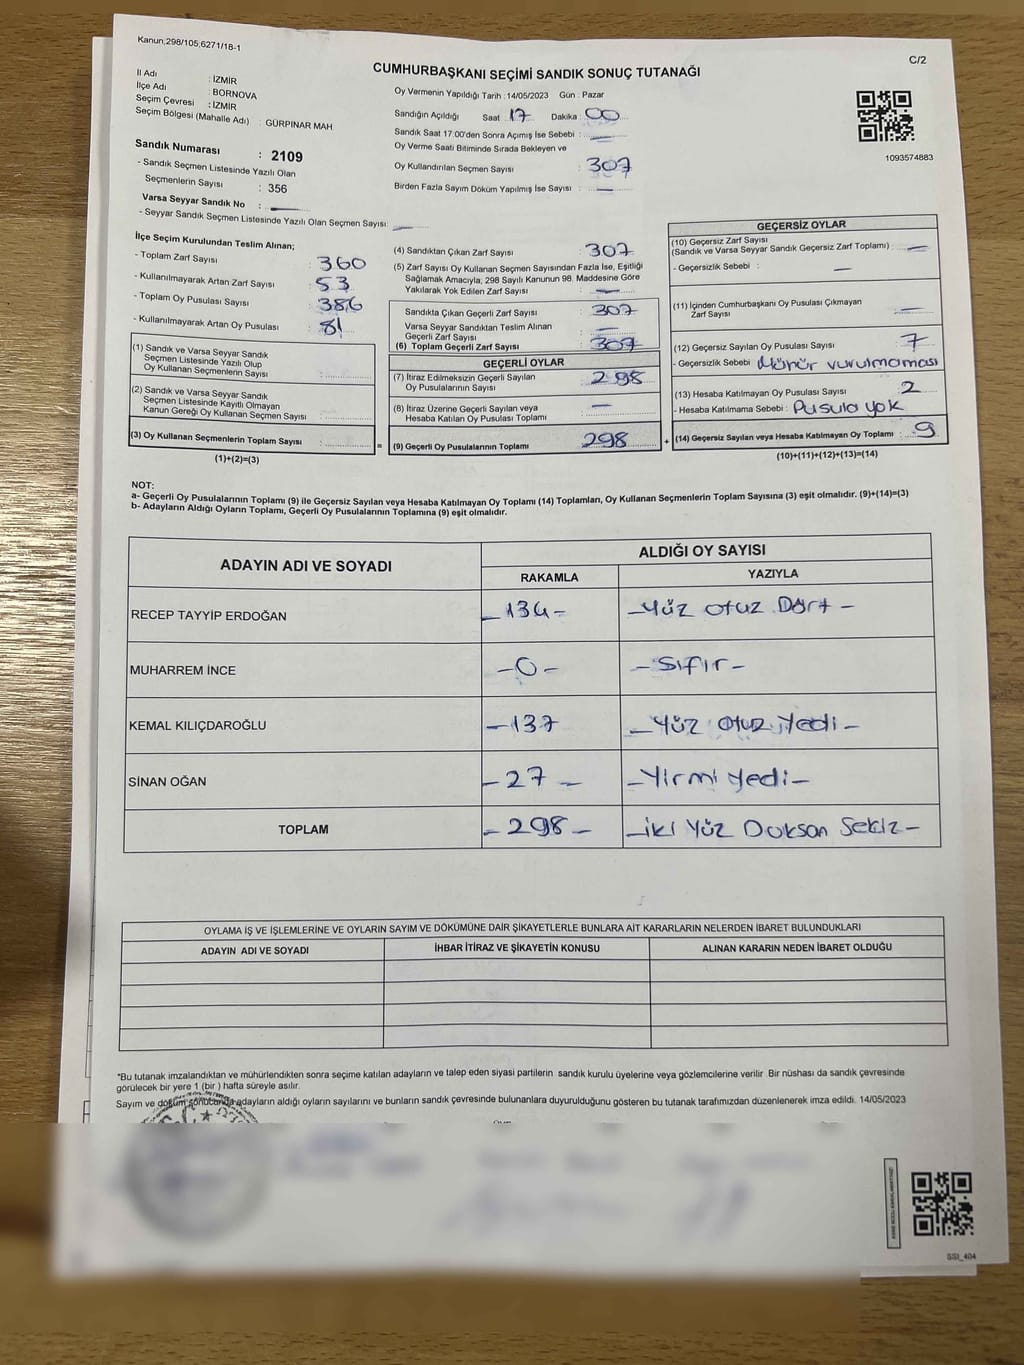 Kanun,298/105;6271/18-1
C/2
CUMHURBAŞKANI SEÇİMİ SANDIK SONUÇ TUTANAĞI
İl Adı : İZMİR
İlçe Adı : BORNOVA
Seçim Çevresi : İZMİR
Seçim Bölgesi (Mahalle Adı) : GÜRPINAR MAH
Sandık Numarası : 2109
- Sandık Seçmen Listesinde Yazılı Olan
Seçmenlerin Sayısı : 356
Varsa Seyyar Sandık No :
- Seyyar Sandık Seçmen Listesinde Yazılı Olan Seçmen Sayısı:
Oy Vermenin Yapıldığı Tarih :14/05/2023 Gün : Pazar
Sandığın Açıldığı Saat 17 Dakika 00
Sandık Saat 17.00'den Sonra Açımış İse Sebebi :
Oy Verme Saati Bitiminde Sırada Bekleyen ve
Oy Kullandırılan Seçmen Sayısı : 307
Birden Fazla Sayım Döküm Yapılmış İse Sayısı :
1093574883
İlçe Seçim Kurulundan Teslim Alınan;
- Toplam Zarf Sayısı : 360
- Kullanılmayarak Artan Zarf Sayısı : 53
- Toplam Oy Pusulası Sayısı : 386
- Kullanılmayarak Artan Oy Pusulası : 81
(1) Sandık ve Varsa Seyyar Sandık
Seçmen Listesinde Yazılı Olup
Oy Kullanan Seçmenlerin Sayısı :
(2) Sandık ve Varsa Seyyar Sandık
Seçmen Listesinde Kayıtlı Olmayan
Kanun Gereği Oy Kullanan Seçmen Sayısı :
(3) Oy Kullanan Seçmenlerin Toplam Sayısı :
(1)+(2)=(3)
=
(4) Sandıktan Çıkan Zarf Sayısı : 307
(5) Zarf Sayısı Oy Kullanan Seçmen Sayısından Fazla İse, Eşitliği
Sağlamak Amacıyla, 298 Sayılı Kanunun 98. Maddesine Göre
Yakılarak Yok Edilen Zarf Sayısı :
Sandıkta Çıkan Geçerli Zarf Sayısı : 307
Varsa Seyyar Sandıktan Teslim Alınan
Geçerli Zarf Sayısı :
(6) Toplam Geçerli Zarf Sayısı : 307
GEÇERLİ OYLAR
(7) İtiraz Edilmeksizin Geçerli Sayılan
Oy Pusulalarının Sayısı : 298
(8) İtiraz Üzerine Geçerli Sayılan veya
Hesaba Katılan Oy Pusulası Toplamı :
(9) Geçerli Oy Pusulalarının Toplamı : 298
+
GEÇERSİZ OYLAR
(10) Geçersiz Zarf Sayısı
(Sandık ve Varsa Seyyar Sandık Geçersiz Zarf Toplamı) :
- Geçersizlik Sebebi :
(11) İçinden Cumhurbaşkanı Oy Pusulası Çıkmayan
Zarf Sayısı :
(12) Geçersiz Sayılan Oy Pusulası Sayısı : 7
- Geçersizlik Sebebi : Mühür vurulmaması
(13) Hesaba Katılmayan Oy Pusulası Sayısı : 2
- Hesaba Katılmama Sebebi : Pusula yok
(14) Geçersiz Sayılan veya Hesaba Katılmayan Oy Toplamı : 9
(10)+(11)+(12)+(13)=(14)
NOT:
a- Geçerli Oy Pusulalarının Toplamı (9) ile Geçersiz Sayılan veya Hesaba Katılmayan Oy Toplamı (14) Toplamları, Oy Kullanan Seçmenlerin Toplam Sayısına (3) eşit olmalıdır. (9)+(14)=(3)
b- Adayların Aldığı Oyların Toplamı, Geçerli Oy Pusulalarının Toplamına (9) eşit olmalıdır.
ADAYIN ADI VE SOYADI ALDIĞI OY SAYISI
RAKAMLA YAZIYLA
RECEP TAYYİP ERDOĞAN -134- -Yüz otuz Dört-
MUHARREM İNCE -0- -Sıfır-
KEMAL KILIÇDAROĞLU -137 -Yüz otuz Yedi-
SİNAN OĞAN -27- -Yirmi Yedi-
TOPLAM -298- -iki Yüz Doksan Sekiz-
OYLAMA İŞ VE İŞLEMLERİNE VE OYLARIN SAYIM VE DÖKÜMÜNE DAİR ŞİKAYETLERLE BUNLARA AİT KARARLARIN NELERDEN İBARET BULUNDUKLARI
ADAYIN ADI VE SOYADI İHBAR İTİRAZ VE ŞİKAYETİN KONUSU ALINAN KARARIN NEDEN İBARET OLDUĞU
*Bu tutanak imzalandıktan ve mühürlendikten sonra seçime katılan adayların ve talep eden siyasi partilerin sandık kurulu üyelerine veya gözlemcilerine verilir .Bir nüshası da sandık çevresinde
görülecek bir yere 1 (bir ) hafta süreyle asılır.
Sayım ve döküm sonucunda adayların aldığı oyların sayılarını ve bunların sandık çevresinde bulunanlara duyurulduğunu gösteren bu tutanak tarafımızdan düzenlenerek imza edildi. 14/05/2023
SSI_404